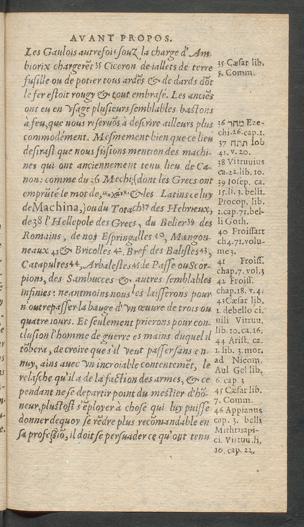 AVANT PROPOS.
Les Gaulois autrefois souz la charge d'Am
biorix chargerẽt 35 Ciceron de iallets de terre
fusille ou de potier tous ardẽs & de dards dõt
le fer estoit rougy & tout embrasé. Les anciẽs
ont eu en vsage plusieurs semblables bastons
à feu, que nous reseruõs à descrire ailleurs plus
commodément. Mesmement bien que ce lieu
desirast que nous fissions mention des machi-
nes qui ont anciennement tenu lieu de Ca-
non: comme du 36 Mechi, (dont les Grecs ont
emprũté le mot de & les Latins celuy
de Machina,) ou du Totach 37 des Hebrieux,
de 38 l'Hellepole des Grecs, du Belier 39 des
Romains, de nos Espringalles 40, Mangon-
neaux 41 & Bricolles 42. Bref des Balistes 43,
Catapultes 44, Arbalestes 45 de Passe ou Scor-
pions, des Sambucces & autres semblables
infinies: neantmoins nous les laisserons pour
n'outrepasser la bauge d'vn œuure de trois ou
quatre iours. Et seulement prierons pour con-
clusion l'homme de guerre es mains duquel il
tõbera, de croire que s'il peut passer sans en-
nuy, ains auec vn incroiable contentemẽt, le
relasche qu'il a de la faction des armes, & ce
pendant ne se departir point du mestier d'hõ-
neur, plustost s'ẽployer à chose qui luy puisse
donner dequoy se rẽdre plus recommandable en
sa professiõ, il doit se persuader ce qu'ont tenu
35 Cæsar lib.
5. Comm.
36 Eze-
chi. 26. cap. 1.
37 Iob
41. v. 20.
38 Vitruuius
ca. 22. lib. 10.
39 Iosep. ca.
15. li. 3. belli.
Procop. lib.
1. cap. 71. bel-
li Goth.
40 Froissart
ch. 47. volu-
me 3.
41 Froiss.
chap. 7. vol. 3
42 Froiss.
chap. 18. v. 4.
43 Cæsar lib.
1. de bello ci-
uili Vitruu.
lib. 10. ca. 16.
44 Arist. ca.
1. lib. 3. mor.
ad Nicom.
Aul. Gel lib.
6. cap. 3
45 Cæsar lib.
7. Comm.
46 Appianus
cop. 3. belli
Mithridati-
ci. Vitruu. li.
10. cap. 22.